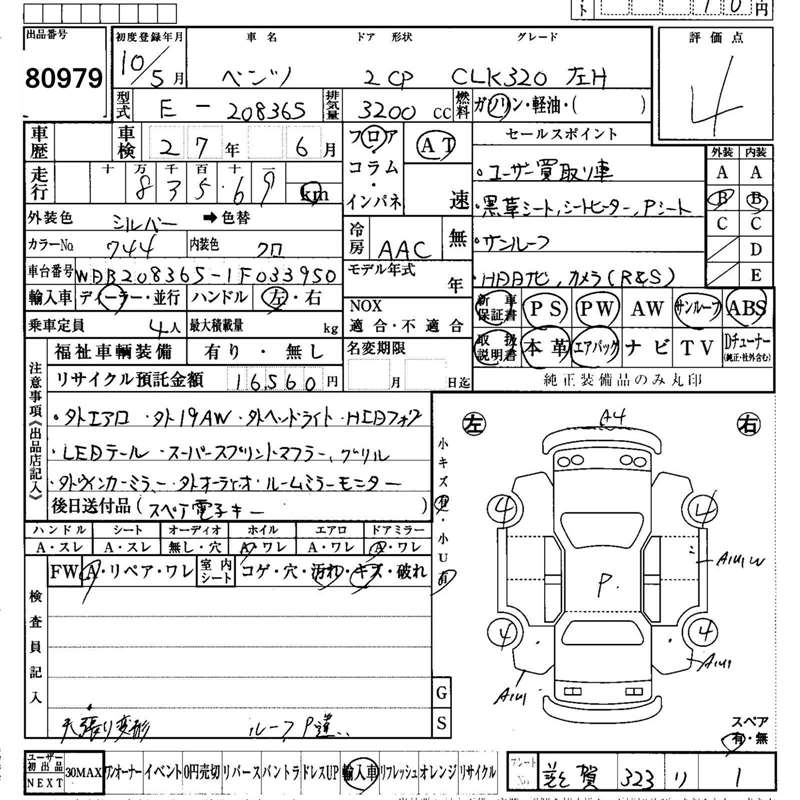 ト 10円
出品番号 初度登録年月 車名 ドア 形状 グレード 評価点
80979 10/5月 ベンツ 2 CP CLK320 左H 4
型式 E-208365 排気量 3200 CC 燃料 ガソリン・軽油・( )
車歴 車検 27年 6月 フロア AT セールスポイント 外装 内装
走行 十 万 千 百 十 一 コラム ・ユーザー買取り車 A A
83569 km インパネ 速 ・黒革シート,シートヒーター,Pシート B B
外装色 シルバー ➡色替 冷房 AAC 無 ・サンルーフ C C
カラーNo. 744 内装色 クロ D
車台番号 WDB208365-1F033950 モデル年式 年 ・HDDナビ,カメラ(R&S) E
輸入車 ディーラー・並行 ハンドル 左・右 NOX 新車保証書 PS PW AW サンルーフ ABS
乗車定員 4人 最大積載量 kg 適合・不適合 取扱説明書 本革 エアバッグ ナビ TV Dチューナー(純正・社外含む)
福祉車輌装備 有り・無し 名変期限 純正装備品のみ丸印
リサイクル預託金額 16560円 月 日迄
注意事項《出品店記入》
・外エアロ ・外19AW ・外ヘッドライト ・HIDフォグ
・LEDテール ・スーパースプリントマフラー,グリル
・外ウインカーミラー ・外オーディオ ・ルームミラーモニター
後日送付品( スペア電子キー )
ハンドル シート オーディオ ホイル エアロ ドアミラー
A・スレ A・スレ 無し・穴 A・ワレ A・ワレ A・ワレ
FW A・リペア・ワレ 室内シート コゲ・穴・汚れ・キズ・破れ
小キズ有・小U有
左 A4 右
4 4
P. A1U1W
4 4
A1U1 A1U1
検査員記入
天張り変形 ルーフP違い
G
S
スペア
有・無
ユーザー初出品NEXT 30MAX ワンオーナー イベント 0円売切 リバース バントラ ドレスUP 輸入車 リフレッシュ オレンジ リサイクル
プレートNo. 滋賀 323 り 1